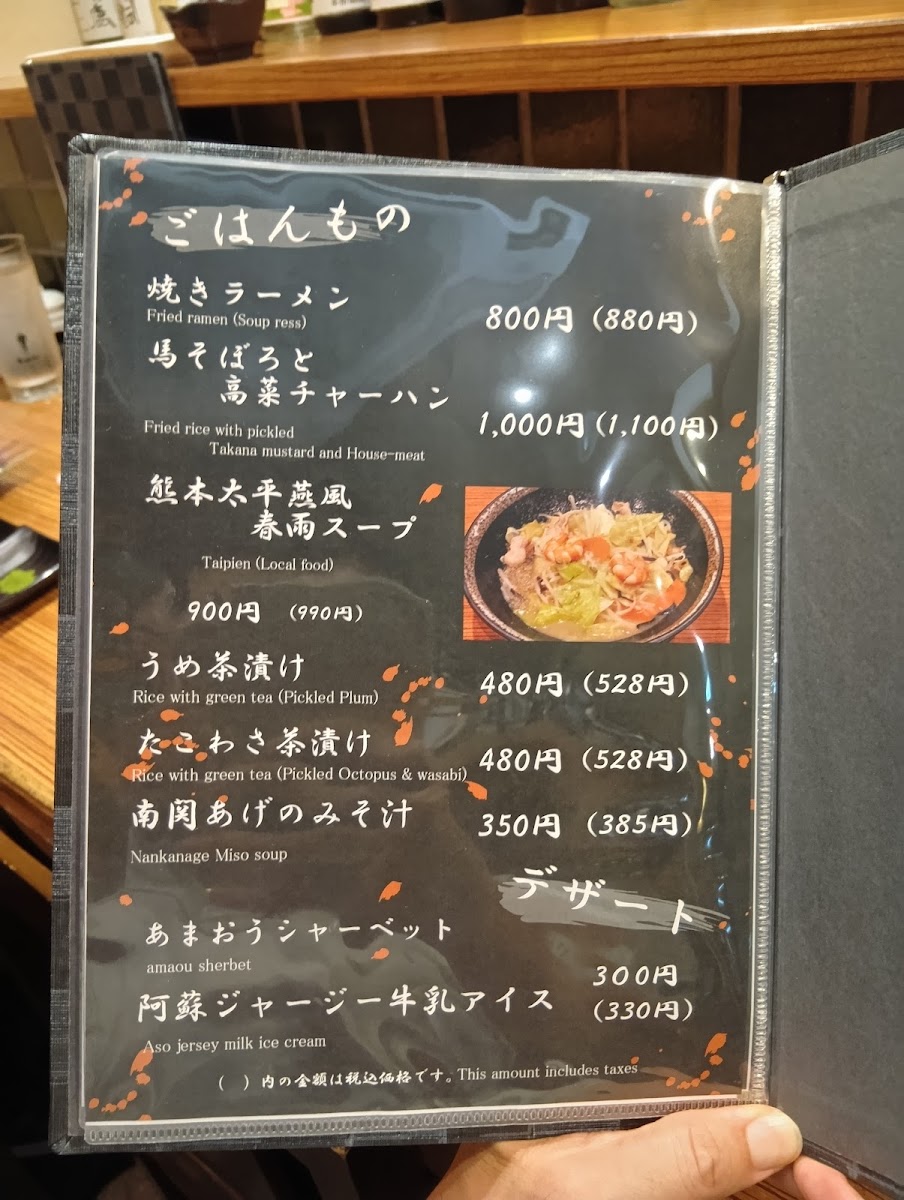 ごはんもの
焼きラーメン
Fried ramen (Soup ress)
800円 (880円)
馬そぼろと
高菜チャーハン
1,000円 (1,100円)
Fried rice with pickled
Takana mustard and House-meat
熊本太平燕風
春雨スープ
Taipien (Local food)
900円 (990円)
うめ茶漬け
Rice with green tea (Pickled Plum)
480円 (528円)
たこわさ茶漬け
Rice with green tea (Pickled Octopus & wasabi)
480円 (528円)
南関あげのみそ汁
350円 (385円)
Nankanage Miso soup
デザート
あまおうシャーベット
amaou sherbet
300円
(330円)
阿蘇ジャージー牛乳アイス
Aso jersey milk ice cream
( ) 内の金額は税込価格です。This amount includes taxes